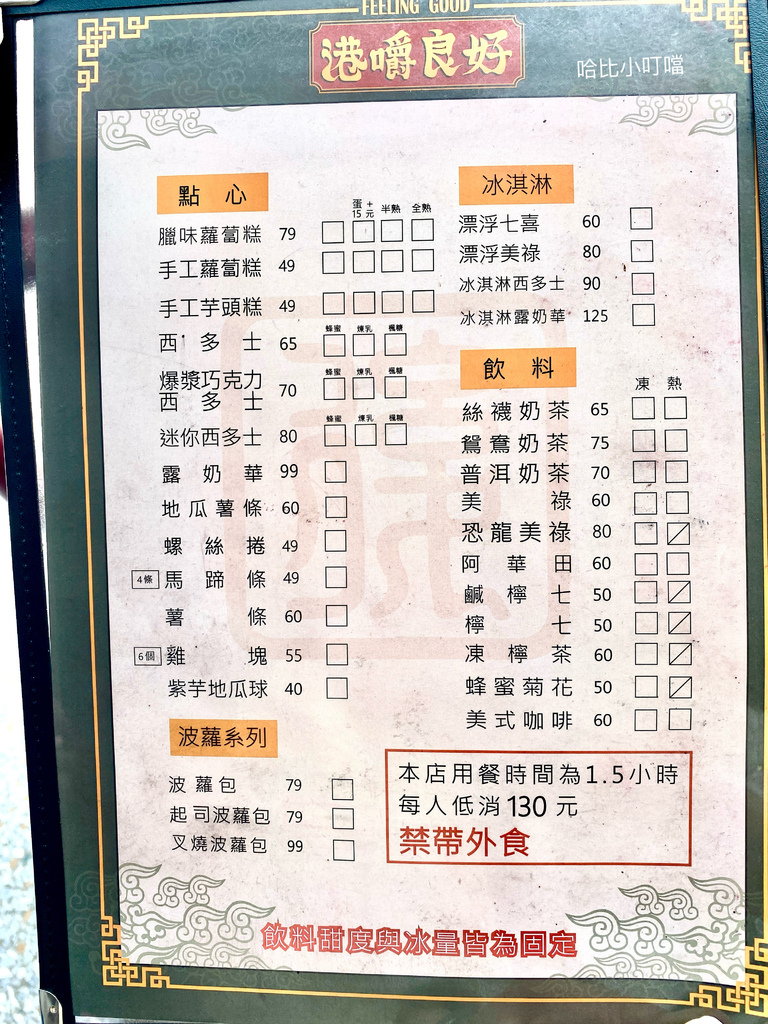 FEELING GOOD
港嚼良好
哈比小叮噹
點 心
蛋+15元 半熟 全熟
臘味蘿蔔糕 79
手工蘿蔔糕 49
手工芋頭糕 49
蜂蜜 煉乳 楓糖
西多士 65
蜂蜜 煉乳 楓糖
爆漿巧克力
西多士 70
蜂蜜 煉乳 楓糖
迷你西多士 80
露奶華 99
地瓜薯條 60
螺絲捲 49
4條 馬蹄條 49
薯條 60
6個 雞塊 55
紫芋地瓜球 40
波蘿系列
波蘿包 79
起司波蘿包 79
叉燒波蘿包 99
冰淇淋
漂浮七喜 60
漂浮美祿 80
冰淇淋西多士 90
冰淇淋露奶華 125
飲 料
凍 熱
絲襪奶茶 65
鴛鴦奶茶 75
普洱奶茶 70
美祿 60
恐龍美祿 80
阿華田 60
鹹檸七 50
檸七 50
凍檸茶 60
蜂蜜菊花 50
美式咖啡 60
本店用餐時間為1.5小時
每人低消130元
禁帶外食
飲料甜度與冰量皆為固定